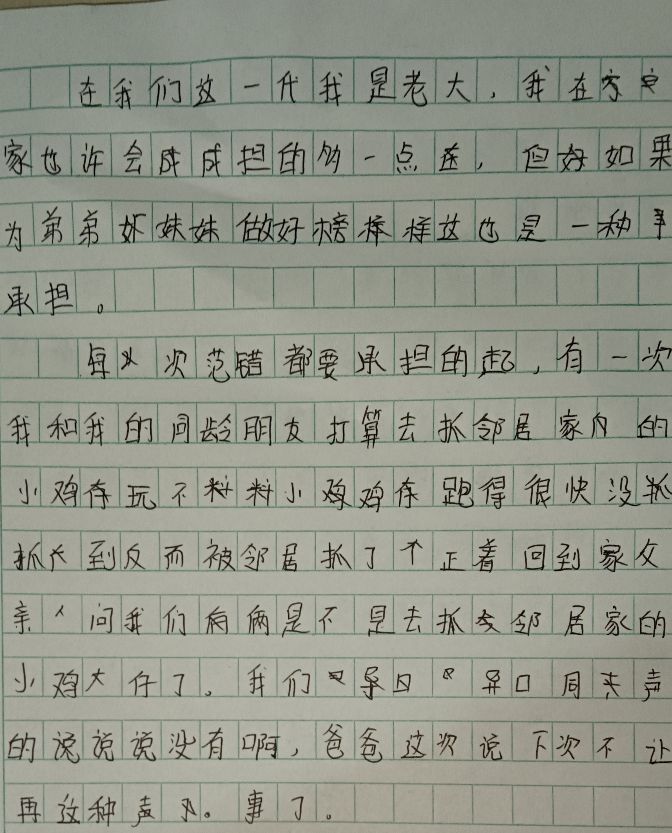 在我们这一代我是老大，我在
家也许会成成担的多一点在，但好如果
为弟弟妹妹做好榜样这也是一种
承担。
每次范错都要承担的起，有一次
我和我的同龄朋友打算去抓邻居家的
小鸡存玩不料料小鸡鸡存跑得很快没抓
抓到反而被邻居抓了个正着回到家父
亲问我们俩是不是去抓邻居家的
小鸡仔了。我们异口异口同声
的说说说没有啊，爸爸这次说下次不让
再这种声。事了。